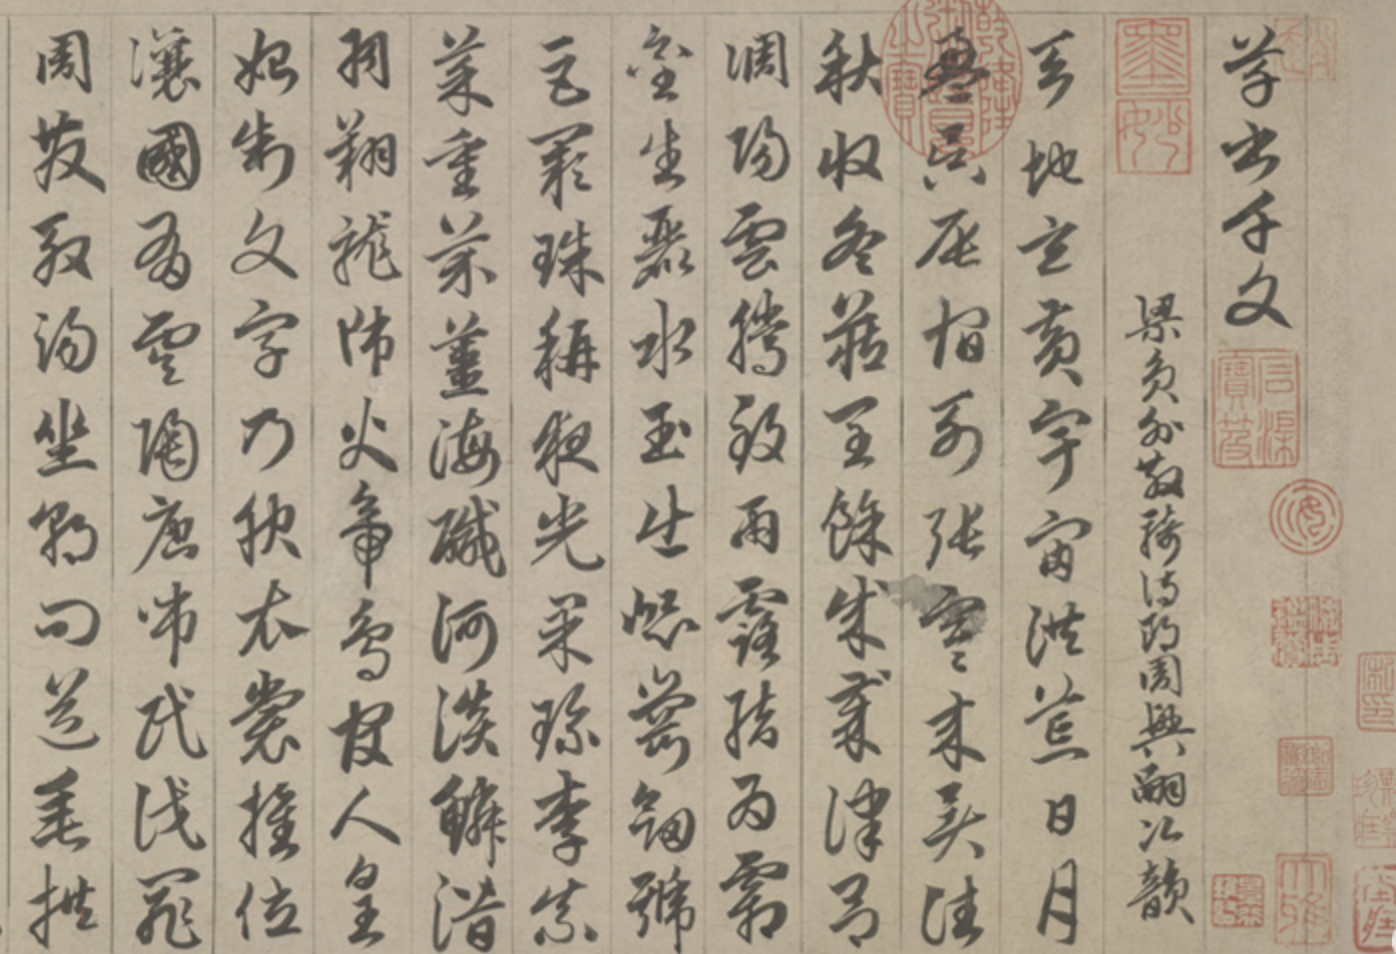 草書千文
石渠寶笈
墨妙
梁員外散騎侍郎周興嗣次韻
天地玄黃宇宙洪荒日月
乾隆御覽之寶
盈昃辰宿列張寒來暑往
秋收冬藏閏餘成歲律呂
調陽雲騰致雨露結為霜
金生麗水玉出崑崗劍號
巨闕珠稱夜光果珍李柰
菜重芥薑海鹹河淡鱗潛
羽翔龍師火帝鳥官人皇
始制文字乃服衣裳推位
讓國有虞陶唐弔民伐罪
周發殷湯坐朝問道垂拱